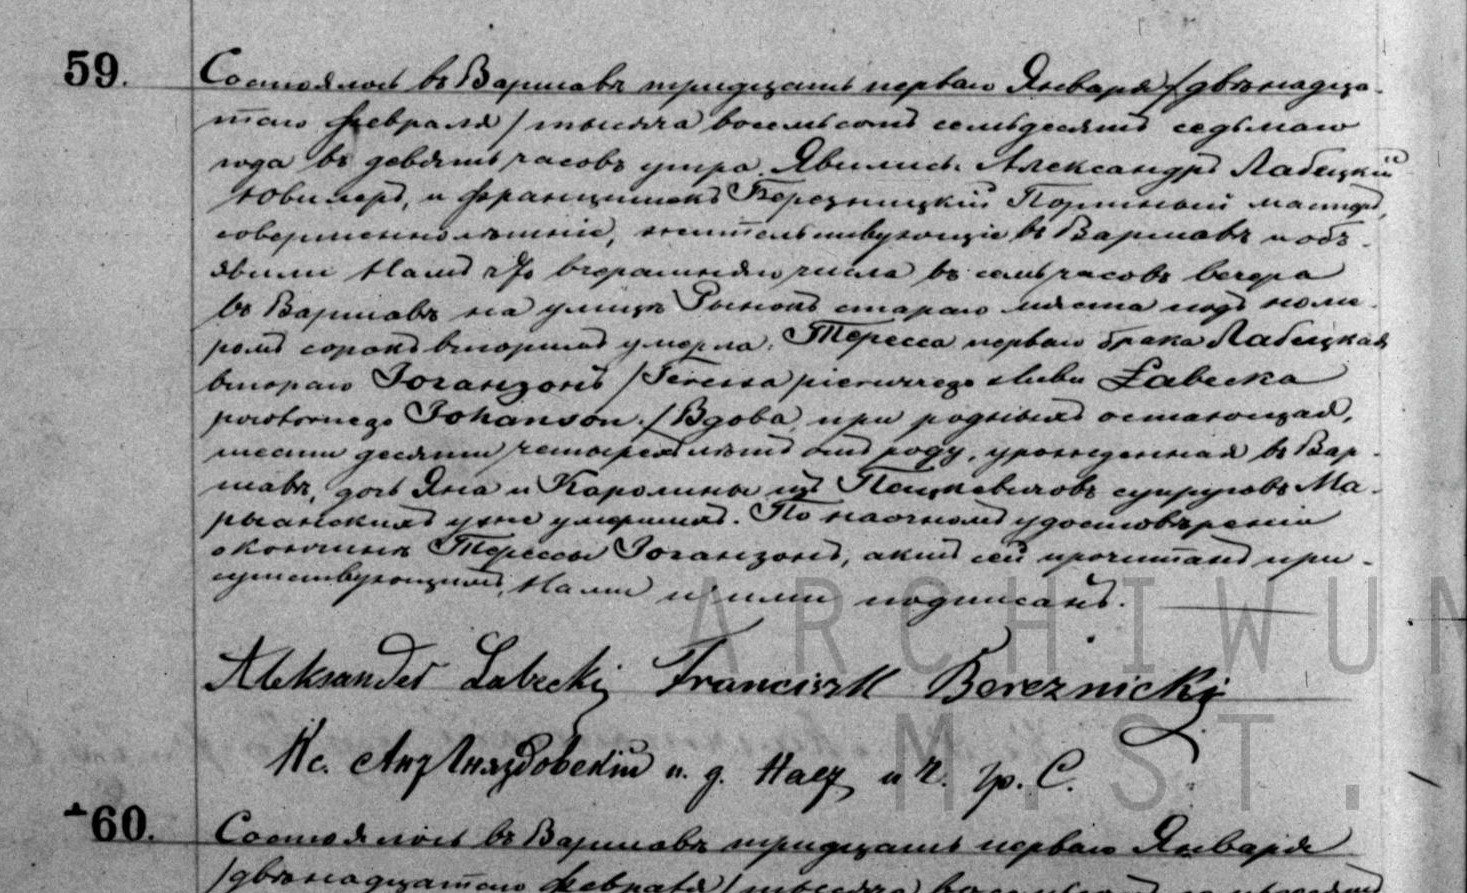 59.
Состоялось въ Варшавѣ тридцать перваго Января /двѣнадца-
таго Февраля/ тысяча восемьсотъ семьдесятъ седьмаго
года въ девять часовъ утра. Явились Александръ Лабецкій
Ювилеръ, и Францишекъ Березницкій Портный мастеръ,
совершеннолѣтніе, жительствующіе въ Варшавѣ и объ-
явили Намъ что вчерашняго числа въ семь часовъ вечера
въ Варшавѣ на улицѣ Рынокъ стараго мяста подъ номе-
ромъ сорокъ вторымъ умерла: Тересса перваго брака Лабецкая
втораго Іоганзонъ /Teressa pierwszego slubu Łabecka
powtornego Johanson./ Вдова, при родныхъ остающая,
шести десяти четырехъ лѣтъ отъ роду, урожденная въ Вар-
шавѣ, дочь Яна и Каролины изъ Пацкевичовъ супруговъ Ма-
рыанскихъ уже умершихъ. По наочномъ удостовѣреніи
о кончинѣ Терессы Іоганзонъ, актъ сей прочитанъ при-
сутствующимъ, Нами и ими подписанъ.
Aleksander Labecki Franciszk Bereznicki
Кс. и. д. Наст. и Ч. гр. С.
60.
Состоялось въ Варшавѣ тридцать перваго Января
/двѣнадцатаго Февраля/ тысяча
ARCHIWUM
M.ST.